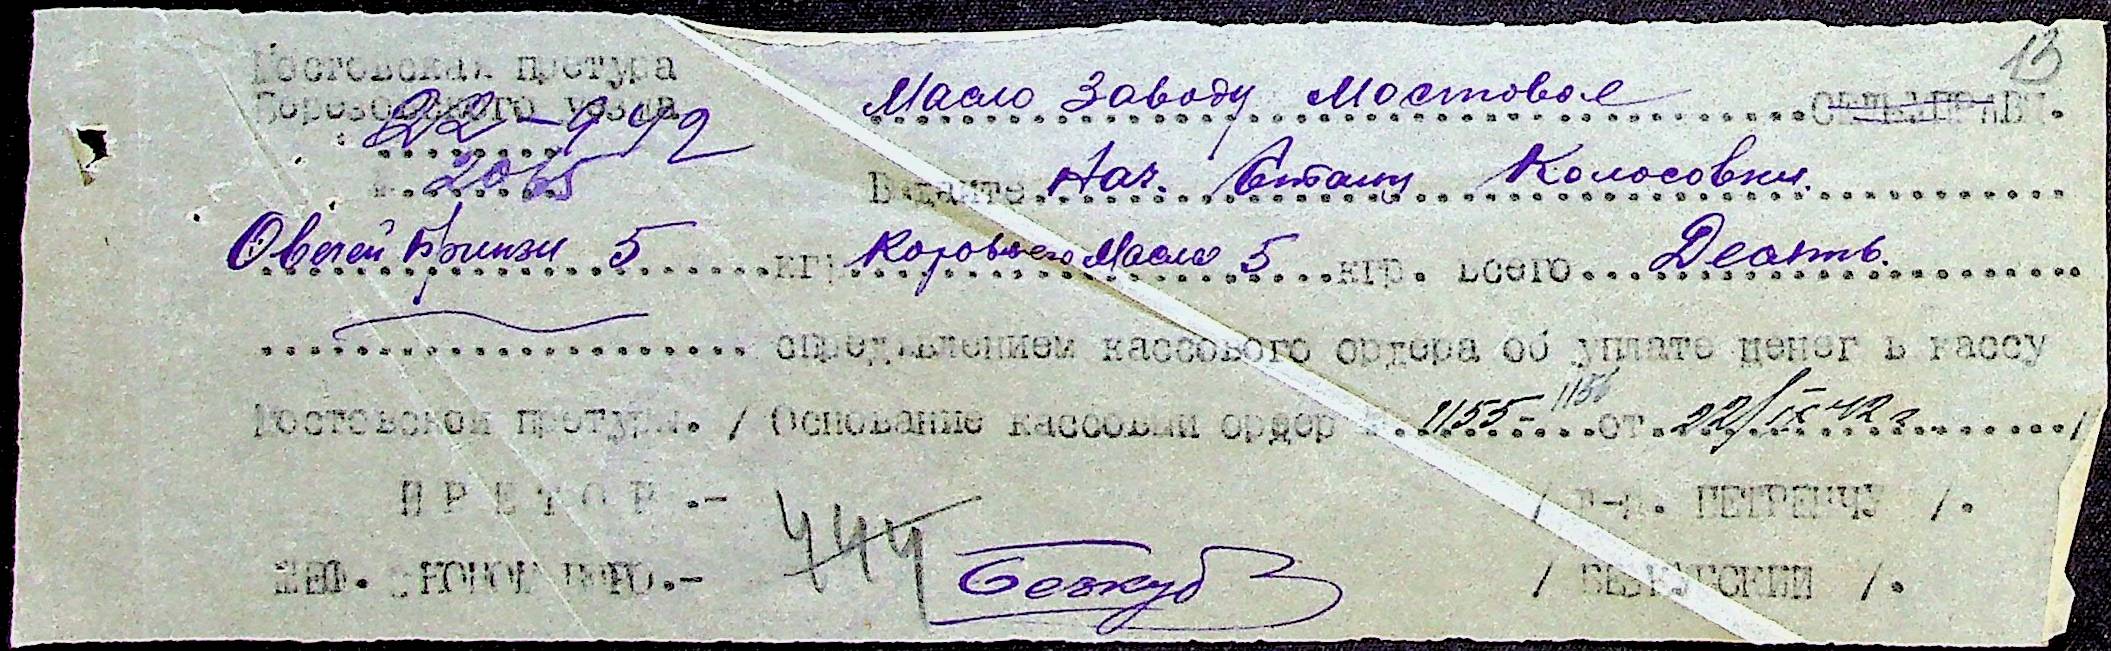 13
Ростовская претура
Березовского уезда
22-9 42
Масло Заводу Мостовое
№ 2065
Выдайте Нач. Колосовки
Овечей Брынзы 5 кгр. Коровьего Масла 5 кгр. всего Десять.
предъявлением кассового ордера об уплате денег в кассу
Ростовской претуры. / Основание кассовый ордер № 1155-1156 от 22/IX 42 г /
ПРЕТОР.- / И-Л. ПЕТРЕНЧУ /.
ШЕФ. ЭКОНОМ БЮРО.- / БЕЗКУБСКИЙ /.
744
Безкуб